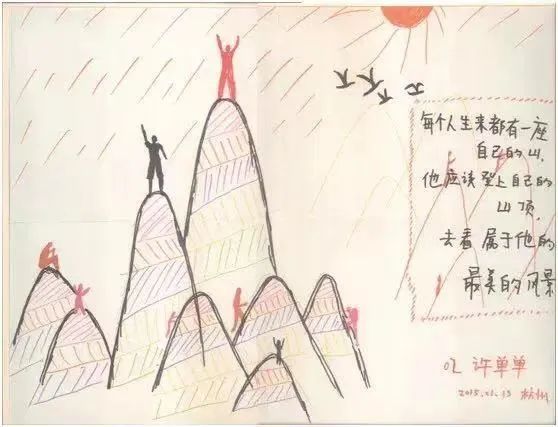 每个人生来都有一座
自己的山,
他应该登上自己的
山顶,
去看属于他的
最美的风景
许单单
2015.01.13 杭州